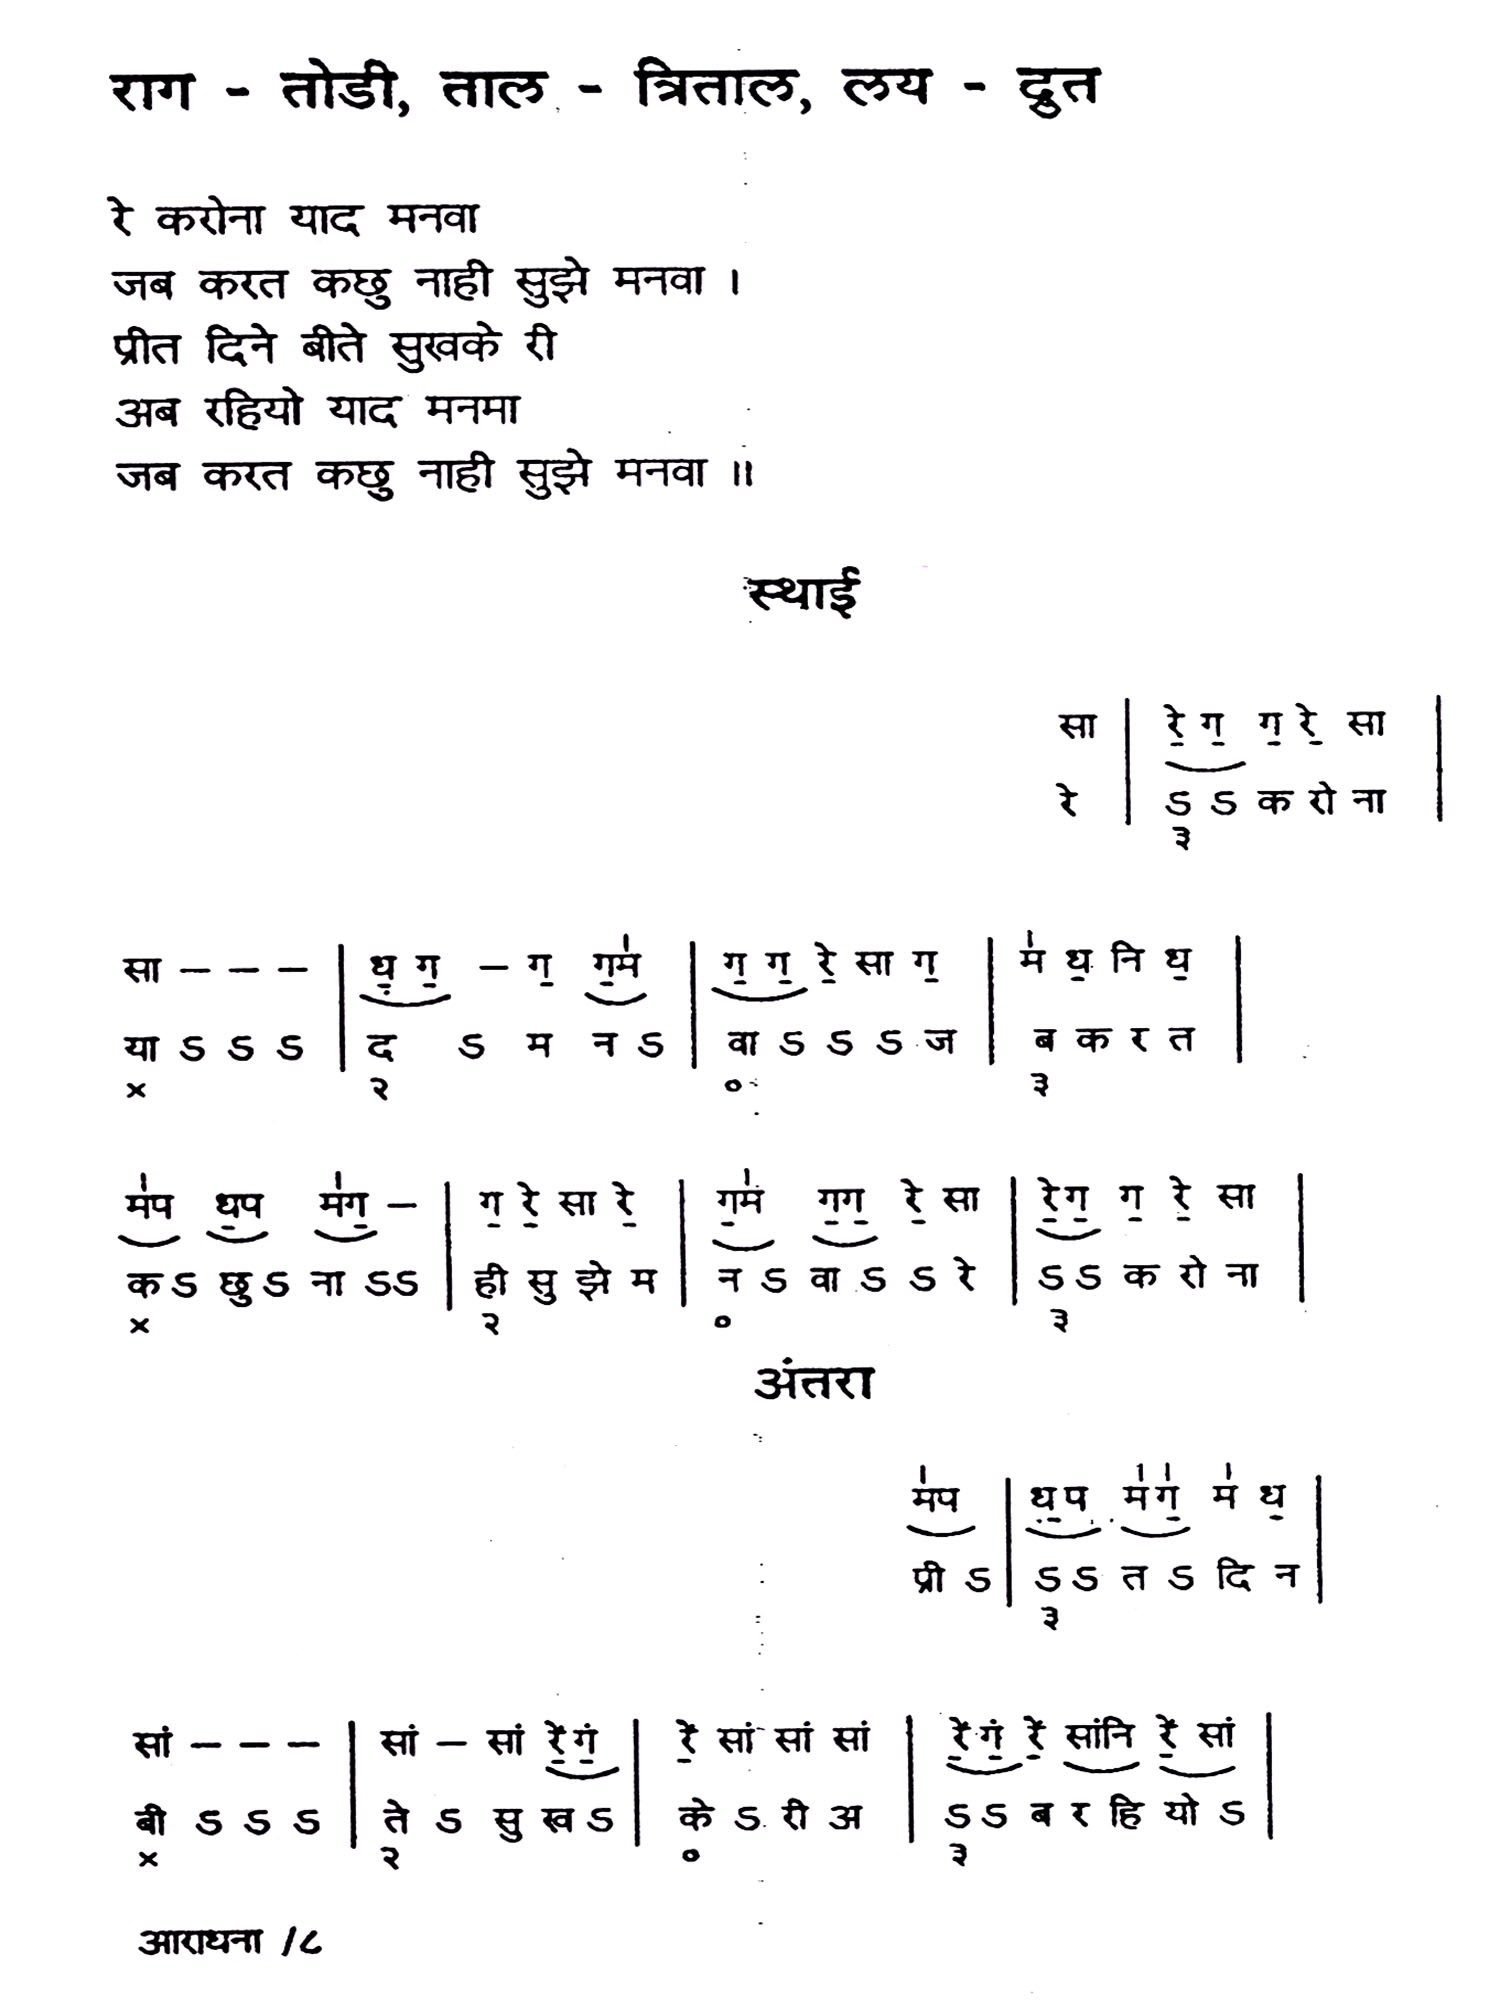 राग - तोडी, ताल - त्रिताल, लय - द्रुत
रे करोना याद मनवा
जब करत कछु नाही सुझे मनवा ।
प्रीत दिने बीते सुखके री
अब रहियो याद मनमा
जब करत कछु नाही सुझे मनवा ॥
स्थाई
सा | रे॒ ग॒ ग॒ रे॒ सा |
रे | ऽ ऽ क रो ना |
३
सा – – – | ध़॒ ग॒ – ग॒ ग॒म॑ | ग॒ ग॒ रे॒ सा ग॒ | म॑ ध॒ नि ध॒ |
या ऽ ऽ ऽ | द ऽ म न ऽ | वा ऽ ऽ ऽ ज | ब क र त |
× २ ० ३
म॑प ध॒प म॑ग॒ – | ग॒ रे॒ सा रे॒ | ग॒म॑ ग॒ग॒ रे॒ सा | रे॒ग॒ ग॒ रे॒ सा |
क ऽ छु ऽ ना ऽऽ | ही सु झे म | न ऽ वा ऽ ऽ रे | ऽ ऽ क रो ना |
× २ ० ३
अंतरा
म॑प | ध॒प म॑ग॒ म॑ ध॒ |
प्री ऽ | ऽ ऽ त ऽ दि न |
३
सां – – – | सां – सां रें॒गं॒ | रें॒ सां सां सां | रें॒गं॒ रें॒ सांनि रें॒ सां |
बी ऽ ऽ ऽ | ते ऽ सु ख ऽ | के ऽ री अ | ऽ ऽ ब र हि यो ऽ |
× २ ० ३
आराधना /८